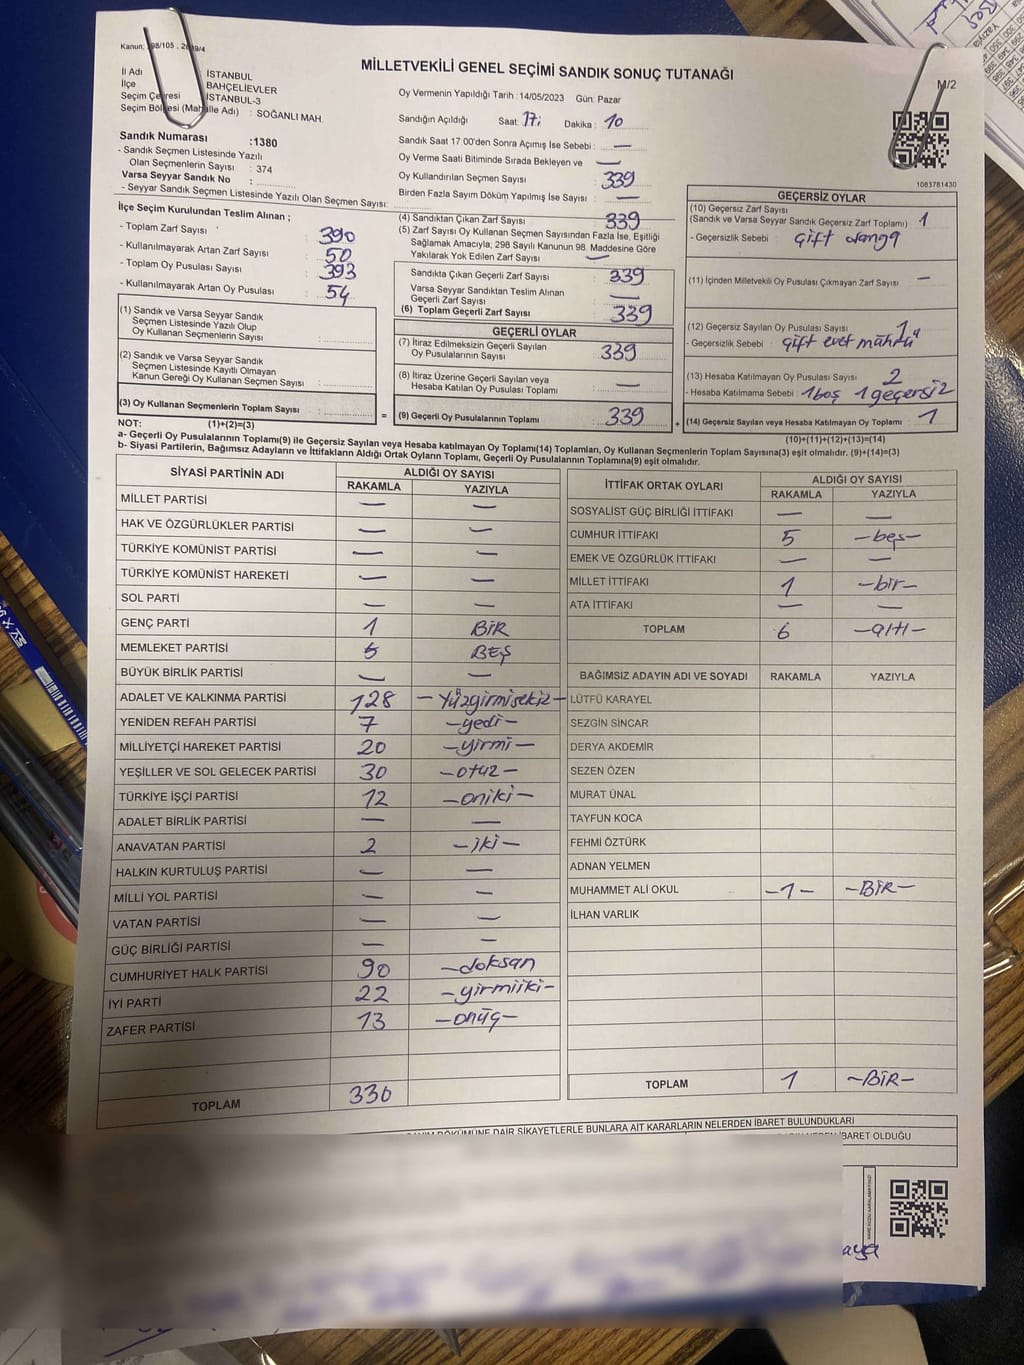 Kanun; 298/105 , 2839/4
MİLLETVEKİLİ GENEL SEÇİMİ SANDIK SONUÇ TUTANAĞI
M/2
İl Adı : İSTANBUL
İlçe : BAHÇELİEVLER
Seçim Çevresi : İSTANBUL-3
Seçim Bölgesi (Mahalle Adı) : SOĞANLI MAH.
Sandık Numarası :1380
- Sandık Seçmen Listesinde Yazılı
Olan Seçmenlerin Sayısı : 374
Varsa Seyyar Sandık No :
- Seyyar Sandık Seçmen Listesinde Yazılı Olan Seçmen Sayısı:
Oy Vermenin Yapıldığı Tarih : 14/05/2023 Gün: Pazar
Sandığın Açıldığı Saat: 17; Dakika : 10
Sandık Saat 17.00'den Sonra Açımış İse Sebebi : —
Oy Verme Saati Bitiminde Sırada Bekleyen ve —
Oy Kullandırılan Seçmen Sayısı : 339
Birden Fazla Sayım Döküm Yapılmış İse Sayısı : —
1083781430
İlçe Seçim Kurulundan Teslim Alınan ;
- Toplam Zarf Sayısı : 390
- Kullanılmayarak Artan Zarf Sayısı : 50
- Toplam Oy Pusulası Sayısı : 393
- Kullanılmayarak Artan Oy Pusulası : 54
(1) Sandık ve Varsa Seyyar Sandık
Seçmen Listesinde Yazılı Olup
Oy Kullanan Seçmenlerin Sayısı :
(2) Sandık ve Varsa Seyyar Sandık
Seçmen Listesinde Kayıtlı Olmayan
Kanun Gereği Oy Kullanan Seçmen Sayısı :
(3) Oy Kullanan Seçmenlerin Toplam Sayısı :
(4) Sandıktan Çıkan Zarf Sayısı : 339
(5) Zarf Sayısı Oy Kullanan Seçmen Sayısından Fazla İse, Eşitliği
Sağlamak Amacıyla; 298 Sayılı Kanunun 98. Maddesine Göre
Yakılarak Yok Edilen Zarf Sayısı : —
Sandıkta Çıkan Geçerli Zarf Sayısı : 339
Varsa Seyyar Sandıktan Teslim Alınan
Geçerli Zarf Sayısı : —
(6) Toplam Geçerli Zarf Sayısı : 339
GEÇERLİ OYLAR
(7) İtiraz Edilmeksizin Geçerli Sayılan
Oy Pusulalarının Sayısı : 339
(8) İtiraz Üzerine Geçerli Sayılan veya
Hesaba Katılan Oy Pusulası Toplamı : —
= (9) Geçerli Oy Pusulalarının Toplamı : 339 +
GEÇERSİZ OYLAR
(10) Geçersiz Zarf Sayısı
(Sandık ve Varsa Seyyar Sandık Geçersiz Zarf Toplamı) : 1
- Geçersizlik Sebebi : Çift
(11) İçinden Milletvekili Oy Pusulası Çıkmayan Zarf Sayısı : —
(12) Geçersiz Sayılan Oy Pusulası Sayısı : 1
- Geçersizlik Sebebi : Çift evet mührü
(13) Hesaba Katılmayan Oy Pusulası Sayısı : 2
- Hesaba Katılmama Sebebi : 1 boş 1 geçersiz
(14) Geçersiz Sayılan veya Hesaba Katılmayan Oy Toplamı : 1
(10)+(11)+(12)+(13)=(14)
NOT: (1)+(2)=(3)
a- Geçerli Oy Pusulalarının Toplamı(9) ile Geçersiz Sayılan veya Hesaba katılmayan Oy Toplamı(14) Toplamları, Oy Kullanan Seçmenlerin Toplam Sayısına(3) eşit olmalıdır. (9)+(14)=(3)
b- Siyasi Partilerin, Bağımsız Adayların ve İttifakların Aldığı Ortak Oyların Toplamı, Geçerli Oy Pusulalarının Toplamına(9) eşit olmalıdır.
SİYASİ PARTİNİN ADI ALDIĞI OY SAYISI
RAKAMLA YAZIYLA
MİLLET PARTİSİ — —
HAK VE ÖZGÜRLÜKLER PARTİSİ — —
TÜRKİYE KOMÜNİST PARTİSİ — —
TÜRKİYE KOMÜNİST HAREKETİ — —
SOL PARTİ — —
GENÇ PARTİ 1 BİR
MEMLEKET PARTİSİ 5 BEŞ
BÜYÜK BİRLİK PARTİSİ — —
ADALET VE KALKINMA PARTİSİ 128 — Yüzyirmisekiz —
YENİDEN REFAH PARTİSİ 7 — yedi —
MİLLİYETÇİ HAREKET PARTİSİ 20 — yirmi —
YEŞİLLER VE SOL GELECEK PARTİSİ 30 — otuz —
TÜRKİYE İŞÇİ PARTİSİ 12 — oniki —
ADALET BİRLİK PARTİSİ — —
ANAVATAN PARTİSİ 2 — iki —
HALKIN KURTULUŞ PARTİSİ — —
MİLLİ YOL PARTİSİ — —
VATAN PARTİSİ — —
GÜÇ BİRLİĞİ PARTİSİ — —
CUMHURİYET HALK PARTİSİ 90 — doksan
İYİ PARTİ 22 — yirmiiki —
ZAFER PARTİSİ 13 — onüç —
TOPLAM 330
İTTİFAK ORTAK OYLARI ALDIĞI OY SAYISI
RAKAMLA YAZIYLA
SOSYALİST GÜÇ BİRLİĞİ İTTİFAKI — —
CUMHUR İTTİFAKI 5 — beş —
EMEK VE ÖZGÜRLÜK İTTİFAKI — —
MİLLET İTTİFAKI 1 — bir —
ATA İTTİFAKI — —
TOPLAM 6 — altı —
BAĞIMSIZ ADAYIN ADI VE SOYADI RAKAMLA YAZIYLA
LÜTFÜ KARAYEL
SEZGİN SİNCAR
DERYA AKDEMİR
SEZEN ÖZEN
MURAT ÜNAL
TAYFUN KOCA
FEHMİ ÖZTÜRK
ADNAN YELMEN
MUHAMMET ALİ OKUL — 1 — — BİR —
İLHAN VARLIK
TOPLAM 1 — BİR —
DÖKÜMÜNE DAİR ŞİKAYETLERLE BUNLARA AİT KARARLARIN NELERDEN İBARET BULUNDUKLARI
İBARET OLDUĞU